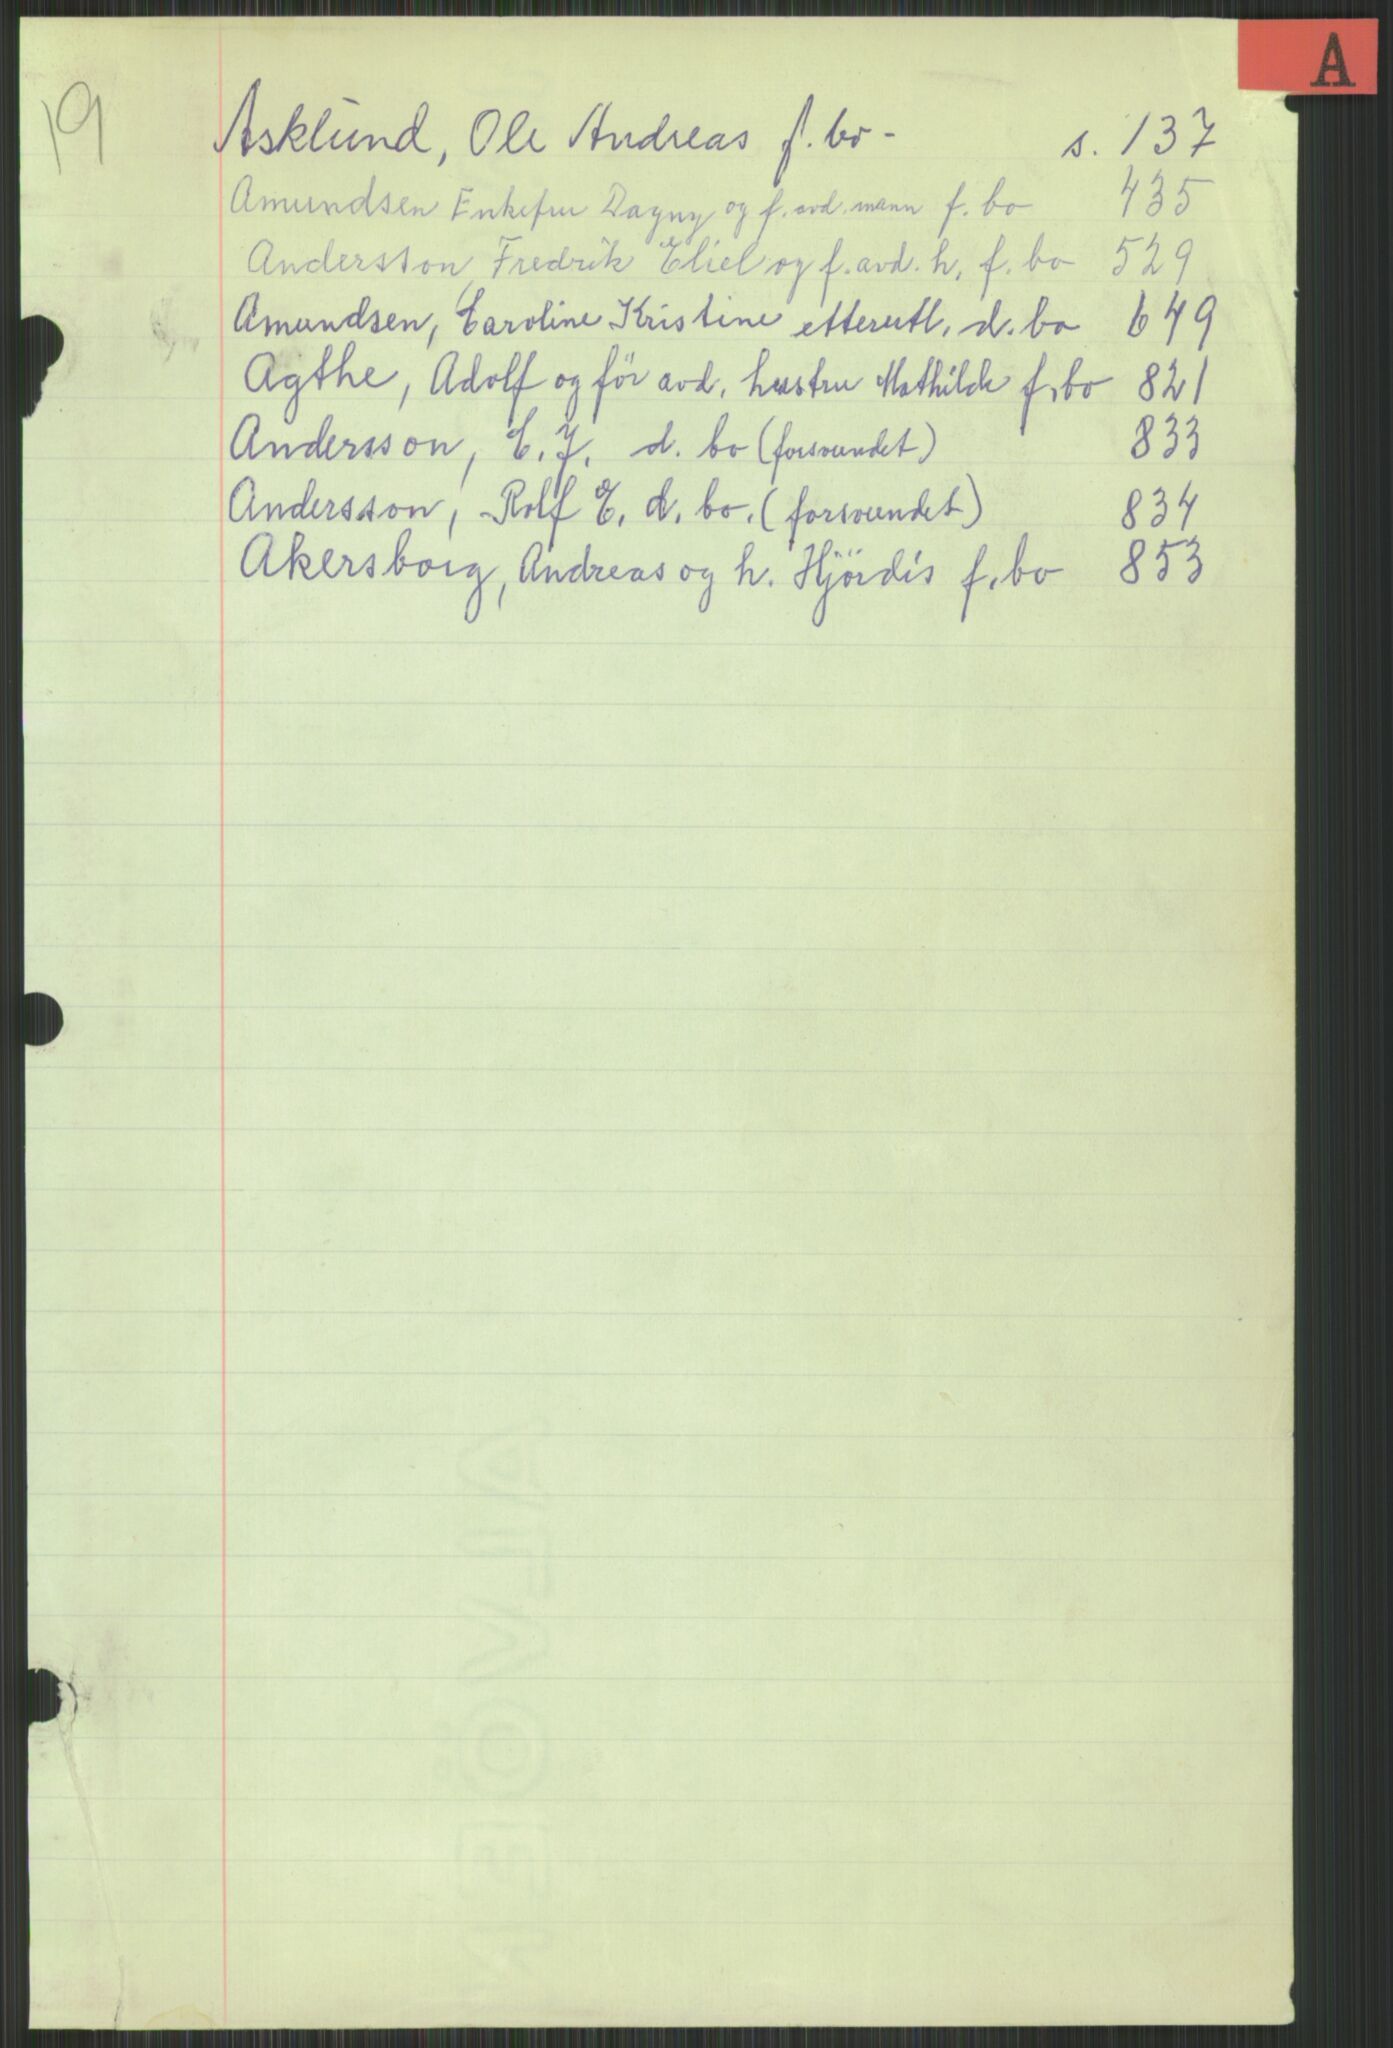 A
19
Asklund, Ole Andreas f. bo - s. 137
Amundsen Enkefru Dagny og f. avd. mann f. bo 435
Andersson, Fredrik Eliel og f. avd. h, f. bo 529
Amundsen, Caroline Kristine etterutl. d. bo 649
Agthe, Adolf og för avd. hustru Mathilde f. bo 821
Andersson, E. J. d. bo (forsvundet) 833
Andersson, Rolf E. d. bo. (forsvundet) 834
Akersborg, Andreas og h. Hjördis f. bo 853